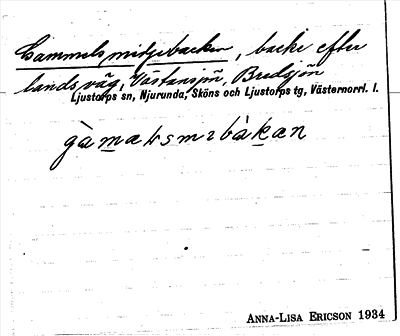 Gammelsmitjebacken, backe efter
landsväg, Västansjön, Bredsjön
Ljustorps sn, Njurunda, Sköns och Ljustorps tg, Västernorrl. l.
ANNA-LISA ERICSON 1934